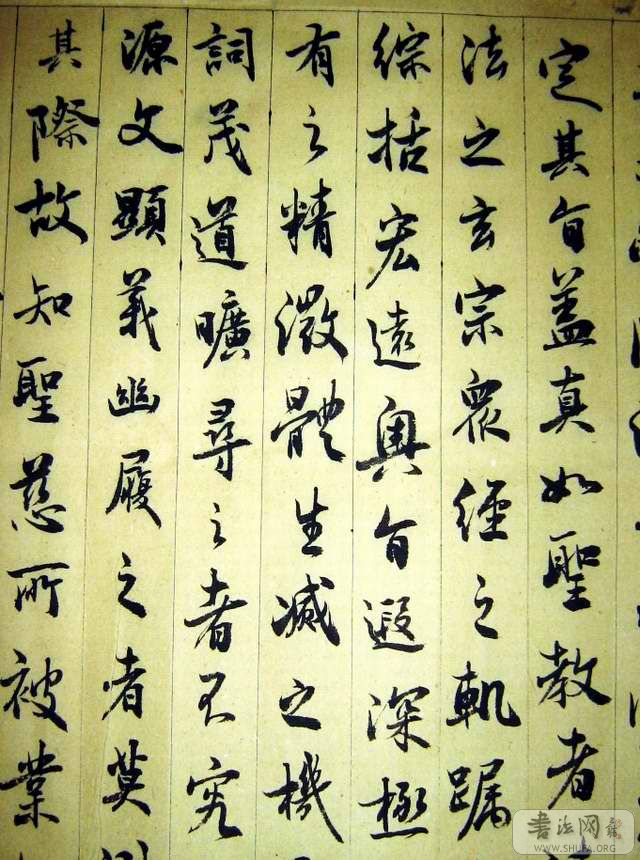 定其旨盖真如聖教者
法之玄宗衆經之軌躅
綜括宏遠奧旨遐深極
有之精微體生滅之機
詞茂道曠尋之者不究
源文顯義幽履之者莫
其際故知聖慈所被業
书法网
WWW.SHUFA.ORG